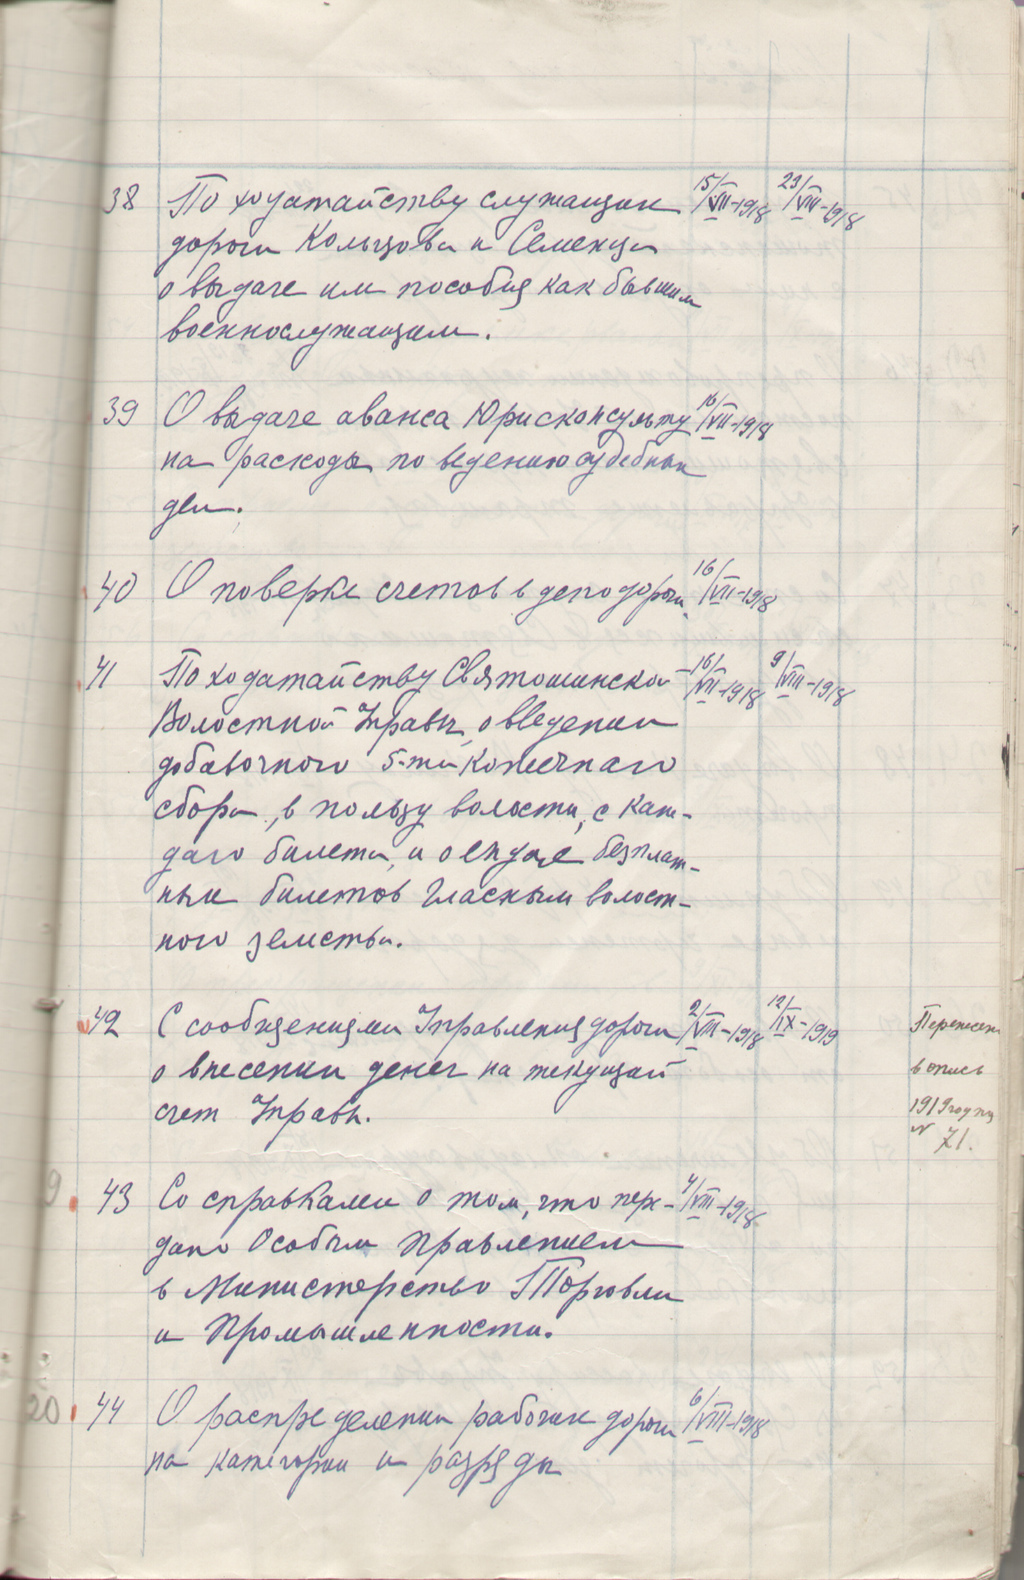 38 По ходатайству служащих 15/VII-1918 23/VIII-1918
дороги Кольцова и Семенца
о выдаче им пособия как бывшим
военнослужащим.
39 О выдаче аванса Юрисконсульту 16/VII-1918
на расходы по ведению судебных
дел.
40 О поверке счетов в депо дороги. 16/VII-1918
41 По ходатайству Святошинской 16/VII-1918 9/VIII-1918
Волостной Управы, о введении
добавочного 5-ти копеечного
сбора, в пользу волости, с каж-
даго билета, и о выдаче безплат-
ных билетов гласным волост-
ного земства.
42 С сообщениями Управления дороги 2/VIII-1918 12/IX-1919
о внесении денег на текущий
счет Управы.
Перенесен
в опись
1919 годна
№ 71.
43 Со справками о том, что пере- 4/VIII-1918
дано Особым Правлением
в Министерство Торговли
и Промышленности.
44 О распределении рабочих дороги 6/VIII-1918
на категории и разряды
20